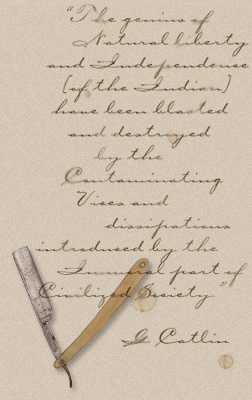 "The genius of
Natural liberty
and Independence
[of the Indian]
have been blasted
and destroyed
by the
Contaminating
Vices and
dissipations
introdused by the
Immoral part of
Civilized Society."
G. Catlin